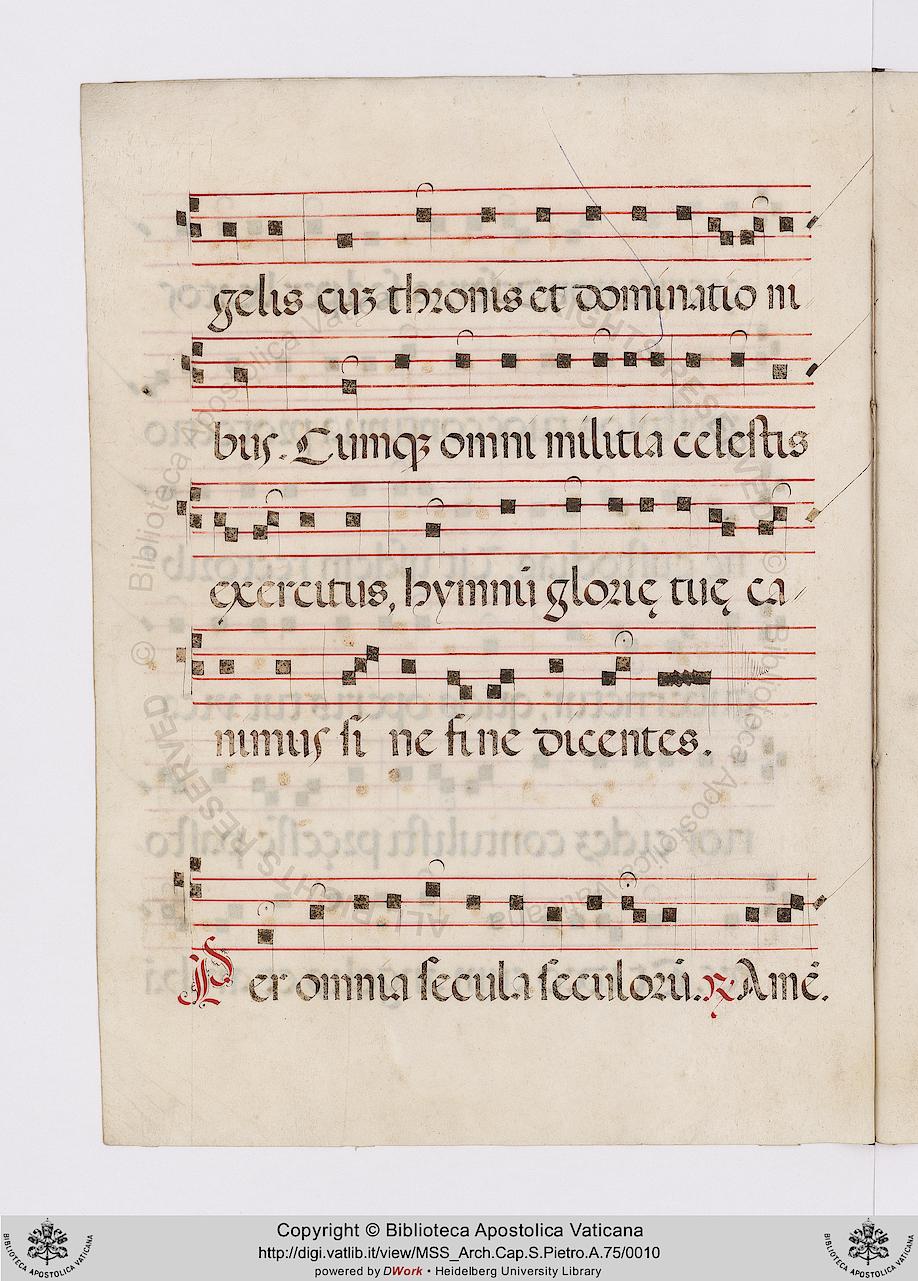 gelis cuȝ thronis et dominatio ni
bus. Cumqꝫ omni militia celestis
exercitus, hymnū glorię tuę ca
nimus si ne fine dicentes.
Per omnia secula seculorū. ℟ Amē.
© Biblioteca Apostolica Vaticana
ALL RIGHTS RESERVED
Copyright © Biblioteca Apostolica Vaticana
http://digi.vatlib.it/view/MSS_Arch.Cap.S.Pietro.A.75/0010
powered by DWork • Heidelberg University Library
BIBLIOTECA APOSTOLICA VATICANA
BIBLIOTECA APOSTOLICA VATICANA